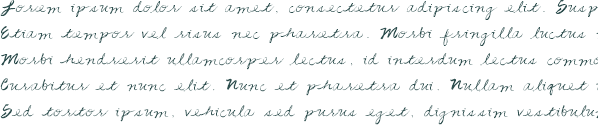 Lorem ipsum dolor sit amet, consectetur adipiscing elit. Susp
Etiam tempor vel risus nec pharetra. Morbi fringilla luctus
Morbi hendrerit ullamcorper lectus, id interdum lectus commo
Curabitur et nunc elit. Nunc et pharetra dui. Nullam aliquet
Sed tortor ipsum, vehicula sed purus eget, dignissim vestibulu